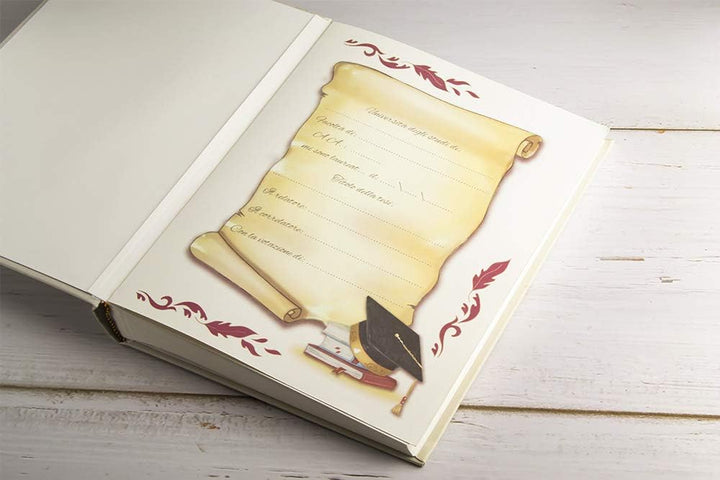 Università degli studi di:
Facoltà di:
A.A.:
mi sono laureat... il ... \ ... \ ...
Titolo della tesi:
Il relatore:
Il correlatore:
Con la votazione di: